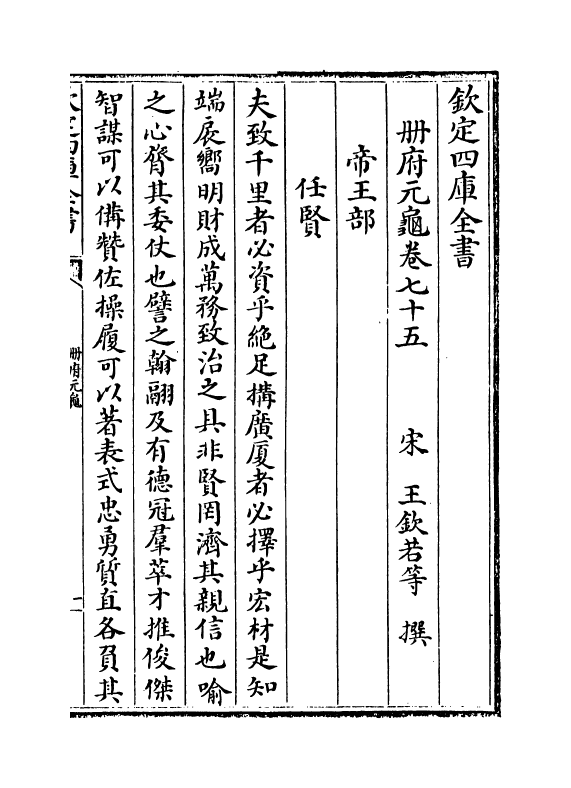 欽定四庫全書
册府元龜卷七十五　宋　王欽若等　撰
帝王部
任賢
夫致千里者必資乎絶足搆廣厦者必擇乎宏材是知
端扆嚮明財成萬務致治之具非賢罔濟其親信也喻
之心膂其委仗也譬之翰翮及有德冠羣萃才推俊傑
智謀可以備贊佐操履可以著表式忠勇質直各負其
册府元龜